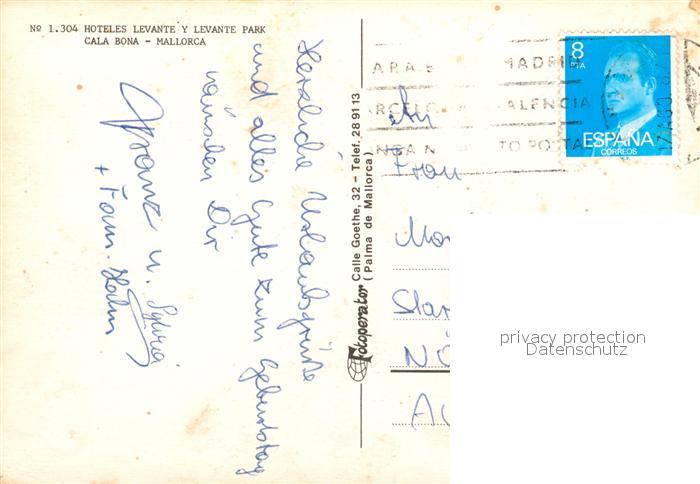 Nº 1.304 HOTELES LEVANTE Y LEVANTE PARK
CALA BONA - MALLORCA
Herzliche Urlaubsgrüße
und alles Gute zum Geburtstag
wünschen Dir
Franz u. Sylvia
+ Fam.
Fotoperator Calle Goethe, 32 - Telef. 28 91 13
(Palma de Mallorca)
8
PTA
ESPAÑA
CORREOS
ARA MADRI
ALENCIA
NGA N TO POSTA
An
Frau
privacy protection
Datenschutz